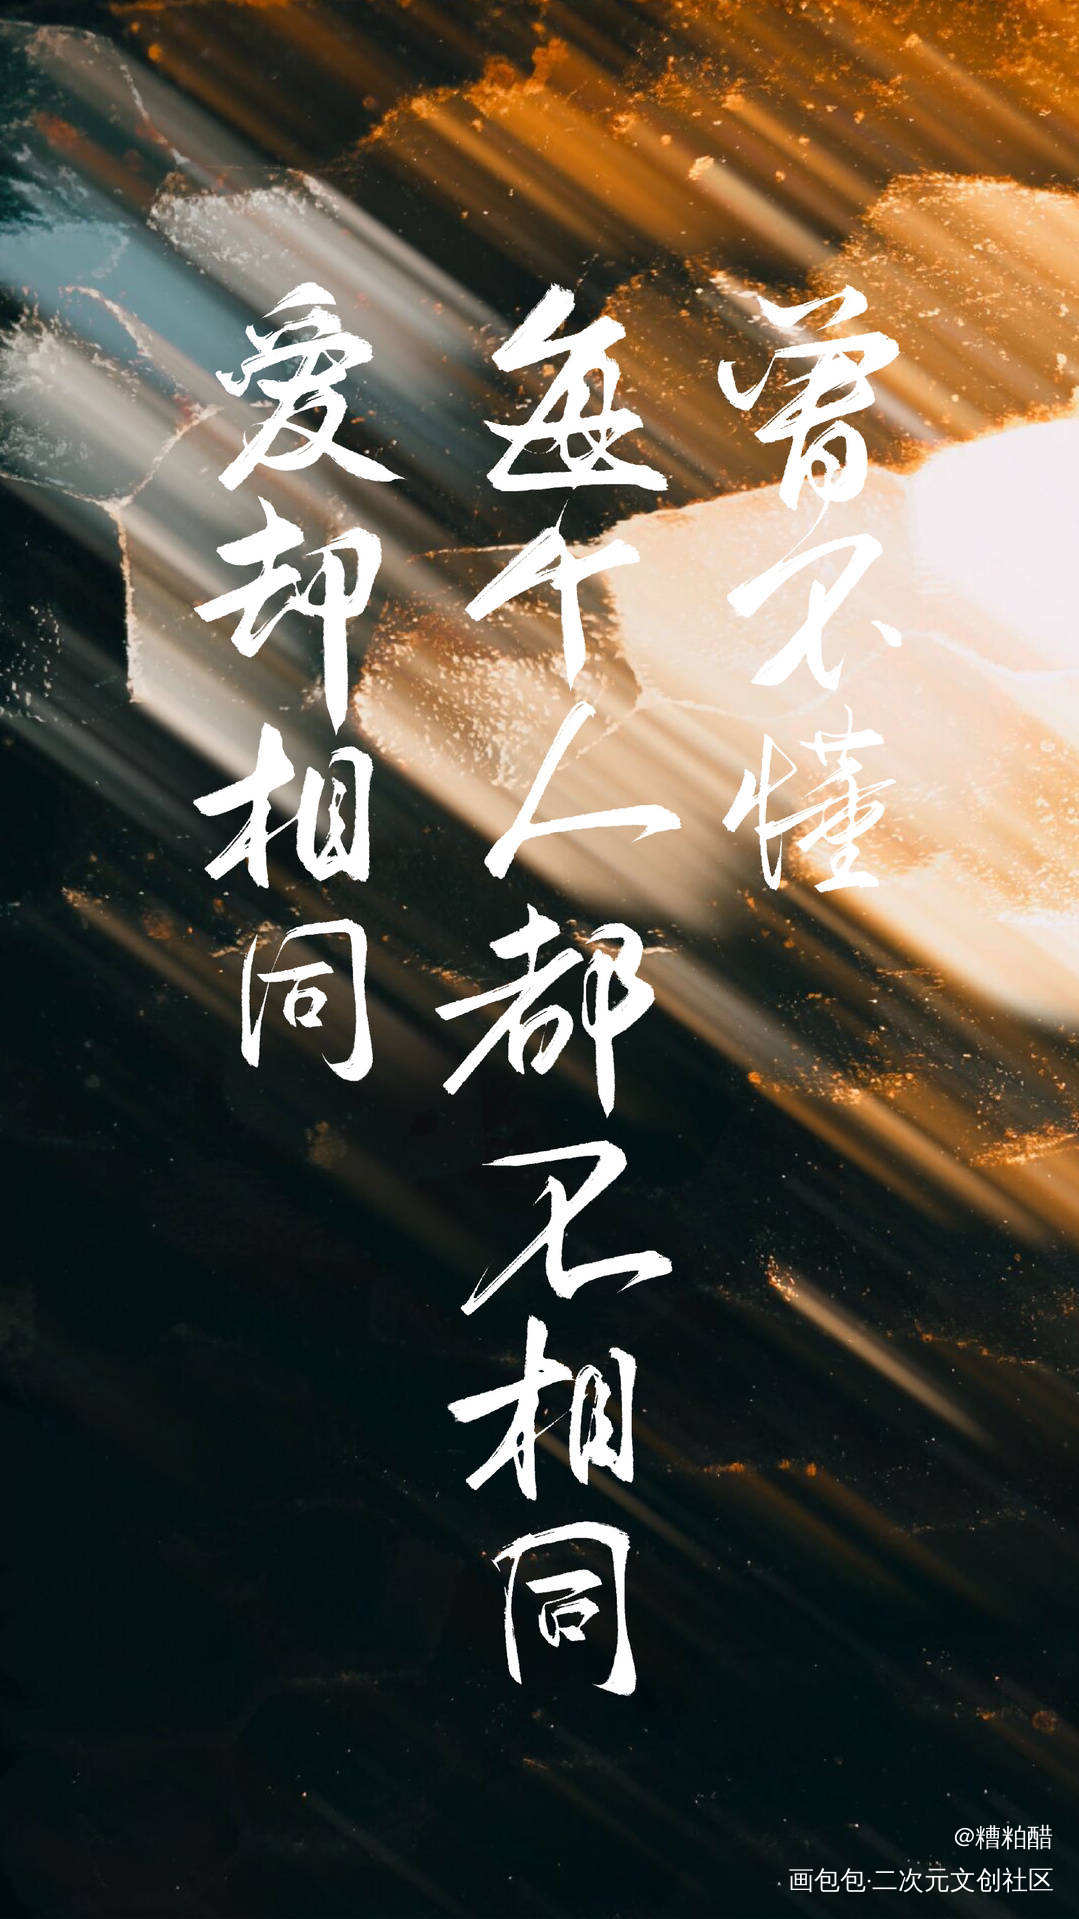 曾不懂
每个人都不相同
爱却相同
@糟粕醋
画包包·二次元文创社区